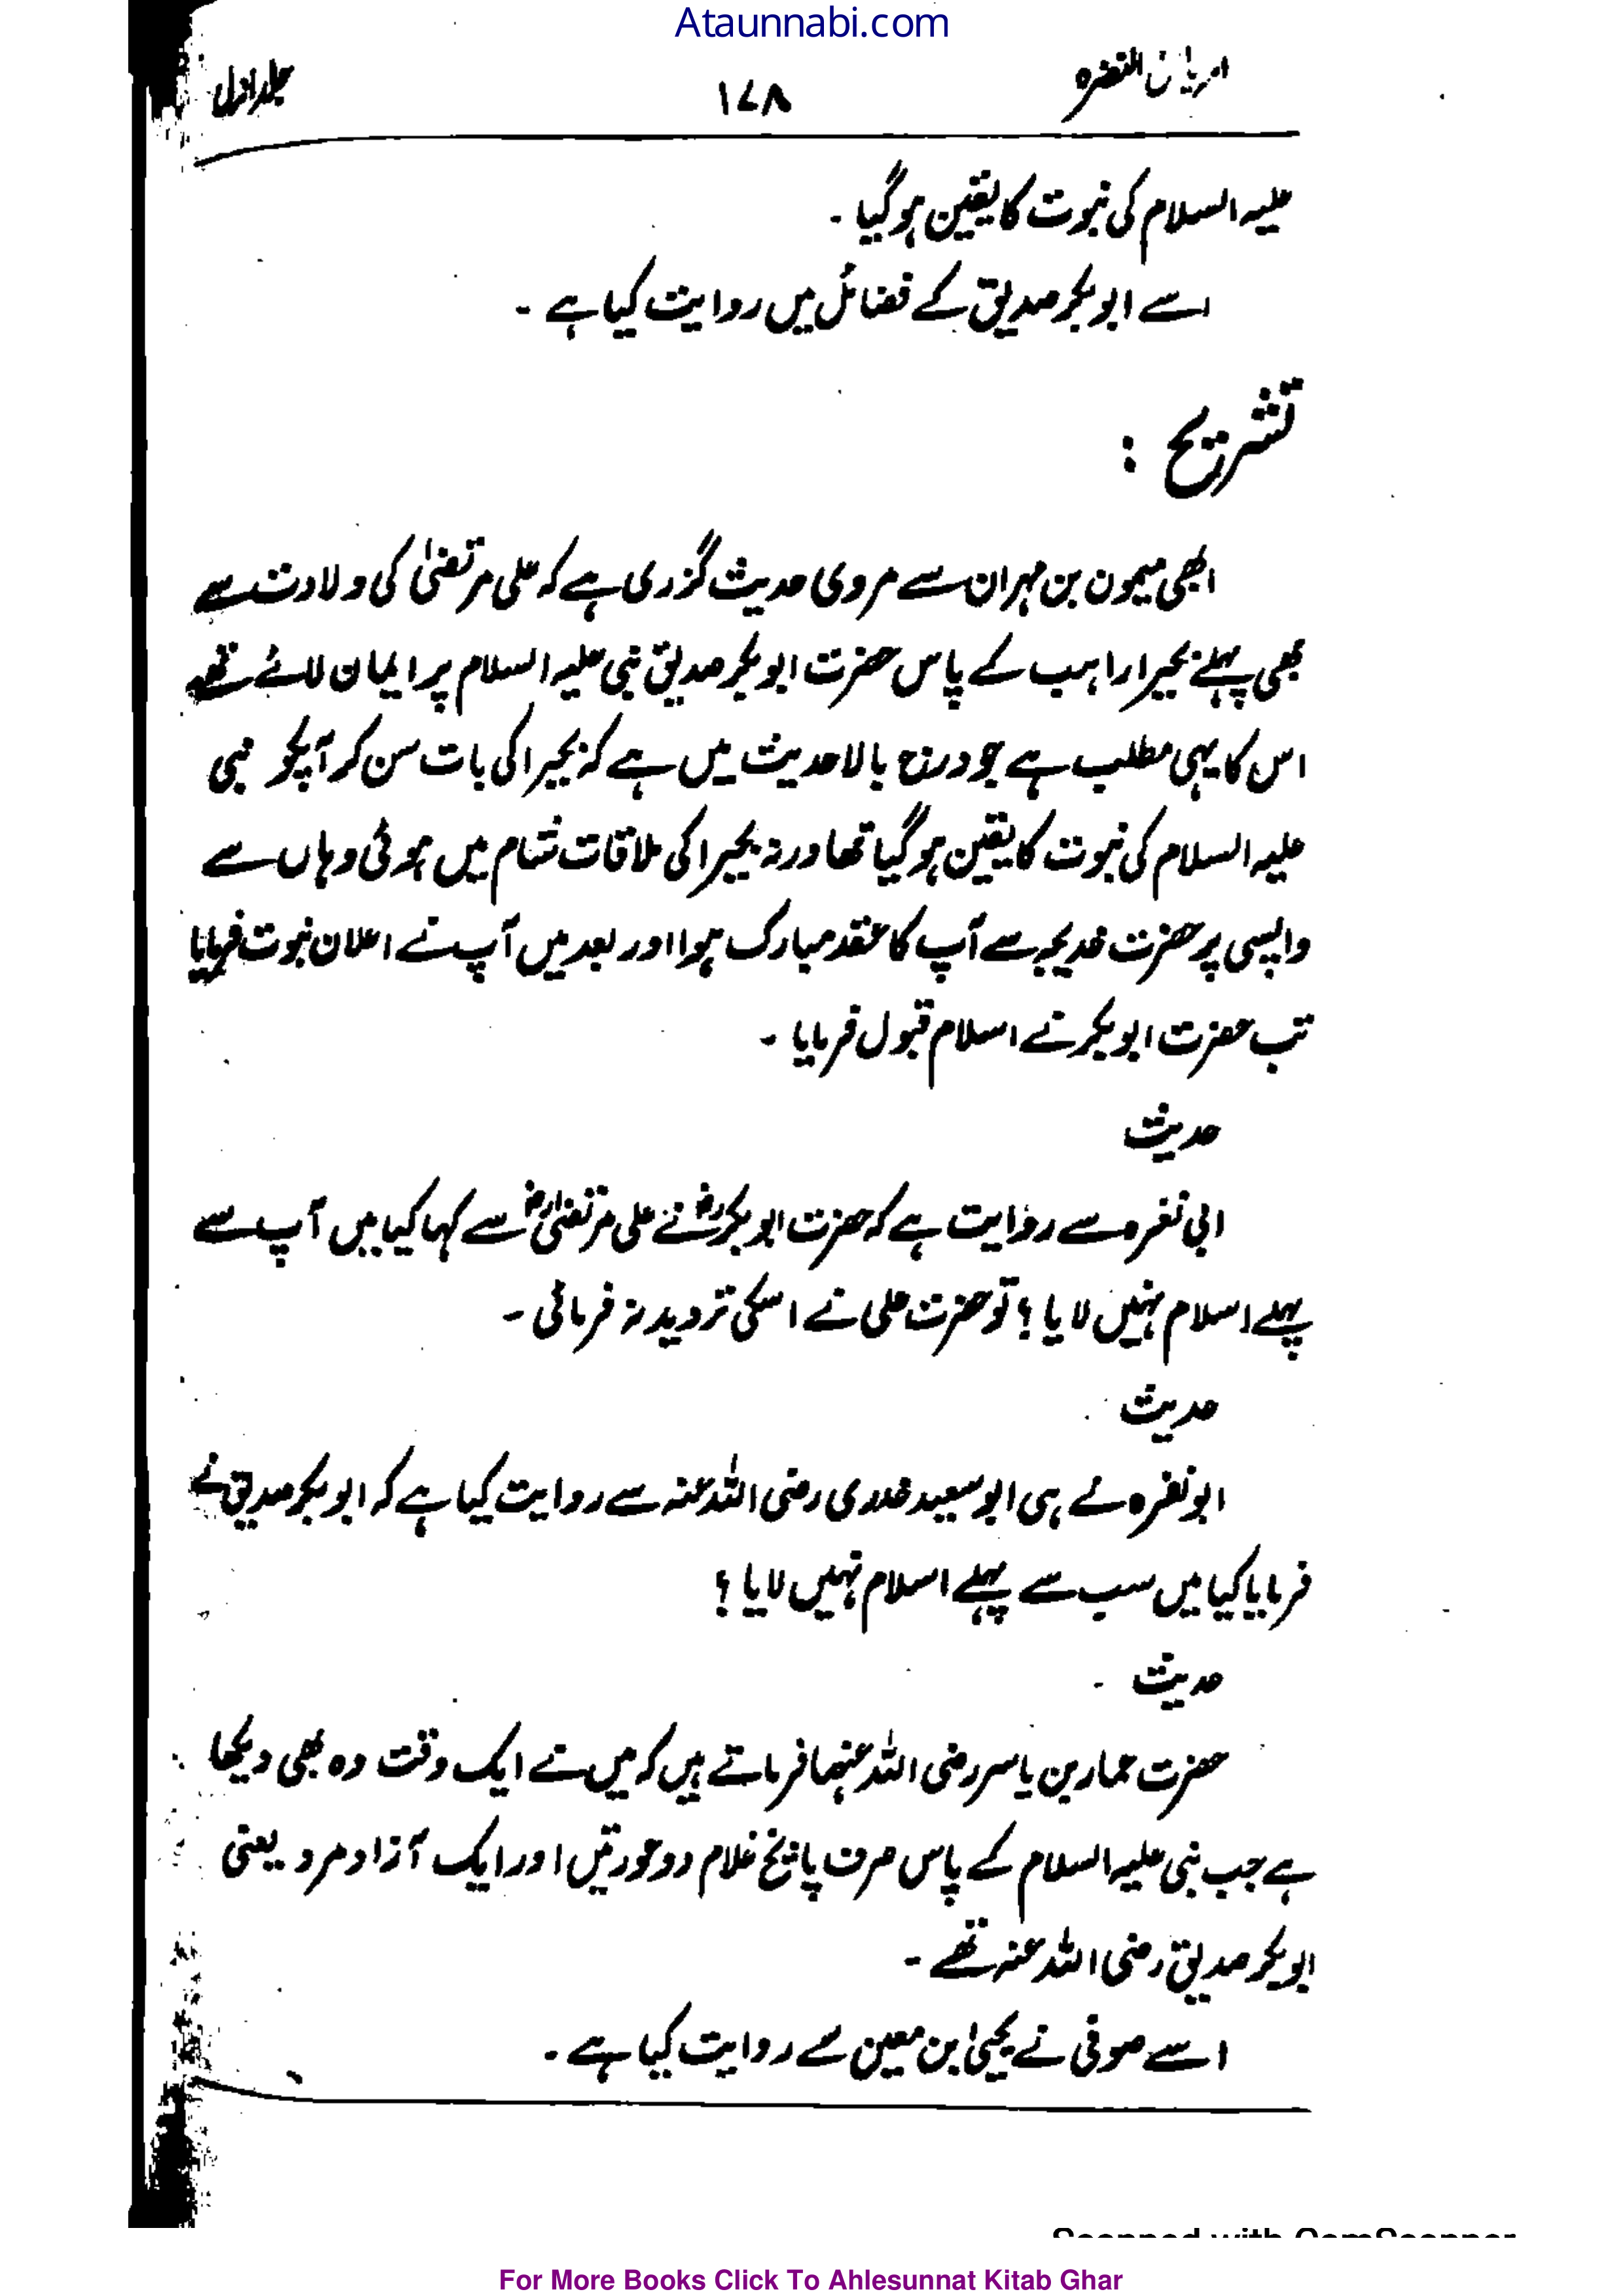 Ataunnabi.com
الریاض النضرہ ۱۷۸ جلد اول
علیہ السلام کی نبوت کا یقین ہو گیا ۔
اسے ابو بکر صدیق کے فضائل میں روایت کیا ہے ۔
تشریح :
ابھی میمون بن مہران سے مروی حدیث گزری ہے کہ علی مرتضیٰ کی ولادت سے
بھی پہلے بحیرا راہب کے پاس حضرت ابو بکر صدیق نبی علیہ السلام پر ایمان لائے تھے
اس کا یہی مطلب ہے جو درج بالا حدیث میں ہے کہ بحیرا کی بات سن کر آپکو نبی
علیہ السلام کی نبوت کا یقین ہو گیا تھا ورنہ بحیرا کی ملاقات شام میں ہوئی وہاں سے
واپسی پر حضرت خدیجہ سے آپ کا عقد مبارک ہوا اور بعد میں آپ نے اعلان نبوت فرمایا
تب حضرت ابو بکر نے اسلام قبول فرمایا ۔
حدیث
ابی نضرہ سے روایت ہے کہ حضرت ابو بکرؓ نے علی مرتضیٰؓ سے کہا کیا میں آپ سے
پہلے اسلام نہیں لایا ؟ تو حضرت علی نے اسکی تردید نہ فرمائی ۔
حدیث
ابو نضرہ نے ہی ابو سعید خدری رضی اللہ عنہ سے روایت کیا ہے کہ ابو بکر صدیق نے
فرمایا کیا میں سب سے پہلے اسلام نہیں لایا ؟
حدیث ۔
حضرت عمار بن یاسر رضی اللہ عنہما فرماتے ہیں کہ میں نے ایک وقت وہ بھی دیکھا
ہے جب نبی علیہ السلام کے پاس صرف پانچ غلام دو عورتیں اور ایک آزاد مرد یعنی
ابو بکر صدیق رضی اللہ عنہ تھے ۔
اسے صوفی نے یحییٰ بن معین سے روایت کیا ہے ۔
Scanned with CamScanner
For More Books Click To Ahlesunnat Kitab Ghar